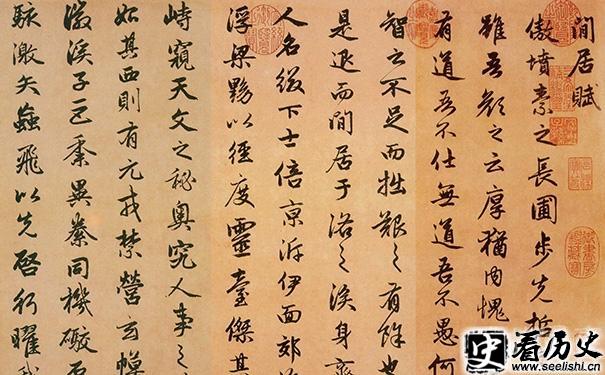 閒居賦
傲墳素之長圃步先哲
雖吾顏之云厚猶內愧
有道吾不仕無道吾不愚何
智之不足而拙艱之有餘也
是退而閒居于洛之涘身齊
人名綴下士倍京泝伊面郊
浮梁黝以徑度靈臺傑其
峙窺天文之秘奧究人事之
如其西則有元戎禁營玄幙
徽溪子巨黍異絭同機礮石
駭激矢蝱飛以先啓行曜我
史 看历史
www.seelishi.cn